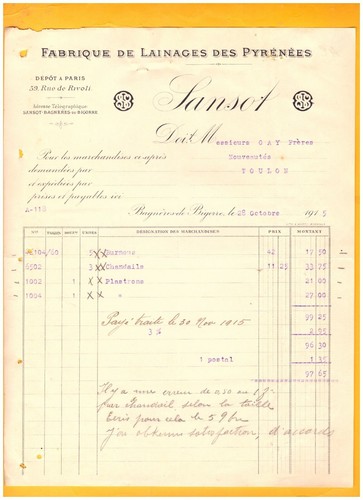 FABRIQUE DE LAINAGES DES PYRÉNÉES
DÉPÔT A PARIS
59, Rue de Rivoli
Adresse Télégraphique
SANSOT-BAGNÈRES-DE-BIGORRE
Sansot
Doit Messieurs ORY Frères
Nouveautés
TOULON
Pour les marchandises ci-après
demandées par
et expédiées par
prises et payables ici
A-118
Bagnères de Bigorre, le 28 Octobre 1915
DÉSIGNATION DES MARCHANDISES PRIX MONTANT
5 Burnous 42 17 50
6502 3 Chandails 11 25 33 75
1092 1 Plastrons 21 00
1094 1 " 27 00
99 25
Payé traite le 30 Nov 1915
3% 2 95
96 30
1 postal 1 35
97 65
Il y a une erreur de 0.50 au 1 gr
sur chandail selon la taille
Écris pour cela le 5 9bre
j'ai obtenu satisfaction, d'accord